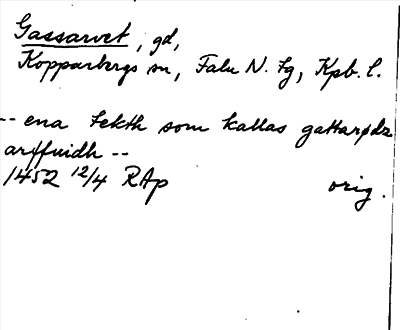 Gassarvet, gd,
Kopparbergs sn, Falu N. tg, Kpb. l.
-- ena tekth som kallas gattarødz
arffuidh --
1452 12/4 RAp orig.